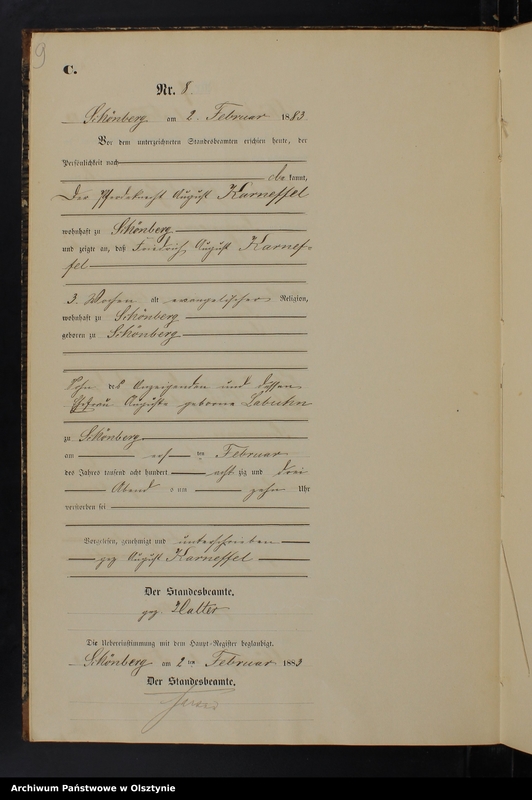 9
C.
Nr. 8
Schönberg am 2. Februar 1883
Vor dem unterzeichneten Standesbeamten erschien heute, der
Persönlichkeit nach
be kannt,
Der Pferdeknecht August Karneffel
wohnhaft zu Schönberg
und zeigte an, daß Friedrich August Karnef-
fel
3. Wochen alt evangelischer Religion,
wohnhaft zu Schönberg
geboren zu Schönberg
Sohn des Anzeigenden und dessen
Ehefrau Auguste geborne Labuhn
zu Schönberg
am ten Februar
des Jahres tausend acht hundert acht zig und drei
Abend s um zehn Uhr
verstorben sei
Vorgelesen, genehmigt und unterschrieben
gez August Karneffel
Der Standesbeamte.
gez. Halter
Die Uebereinstimmung mit dem Haupt-Register beglaubigt.
Schönberg am 2 ten Februar 1883
Der Standesbeamte.
Archiwum Państwowe w Olsztynie